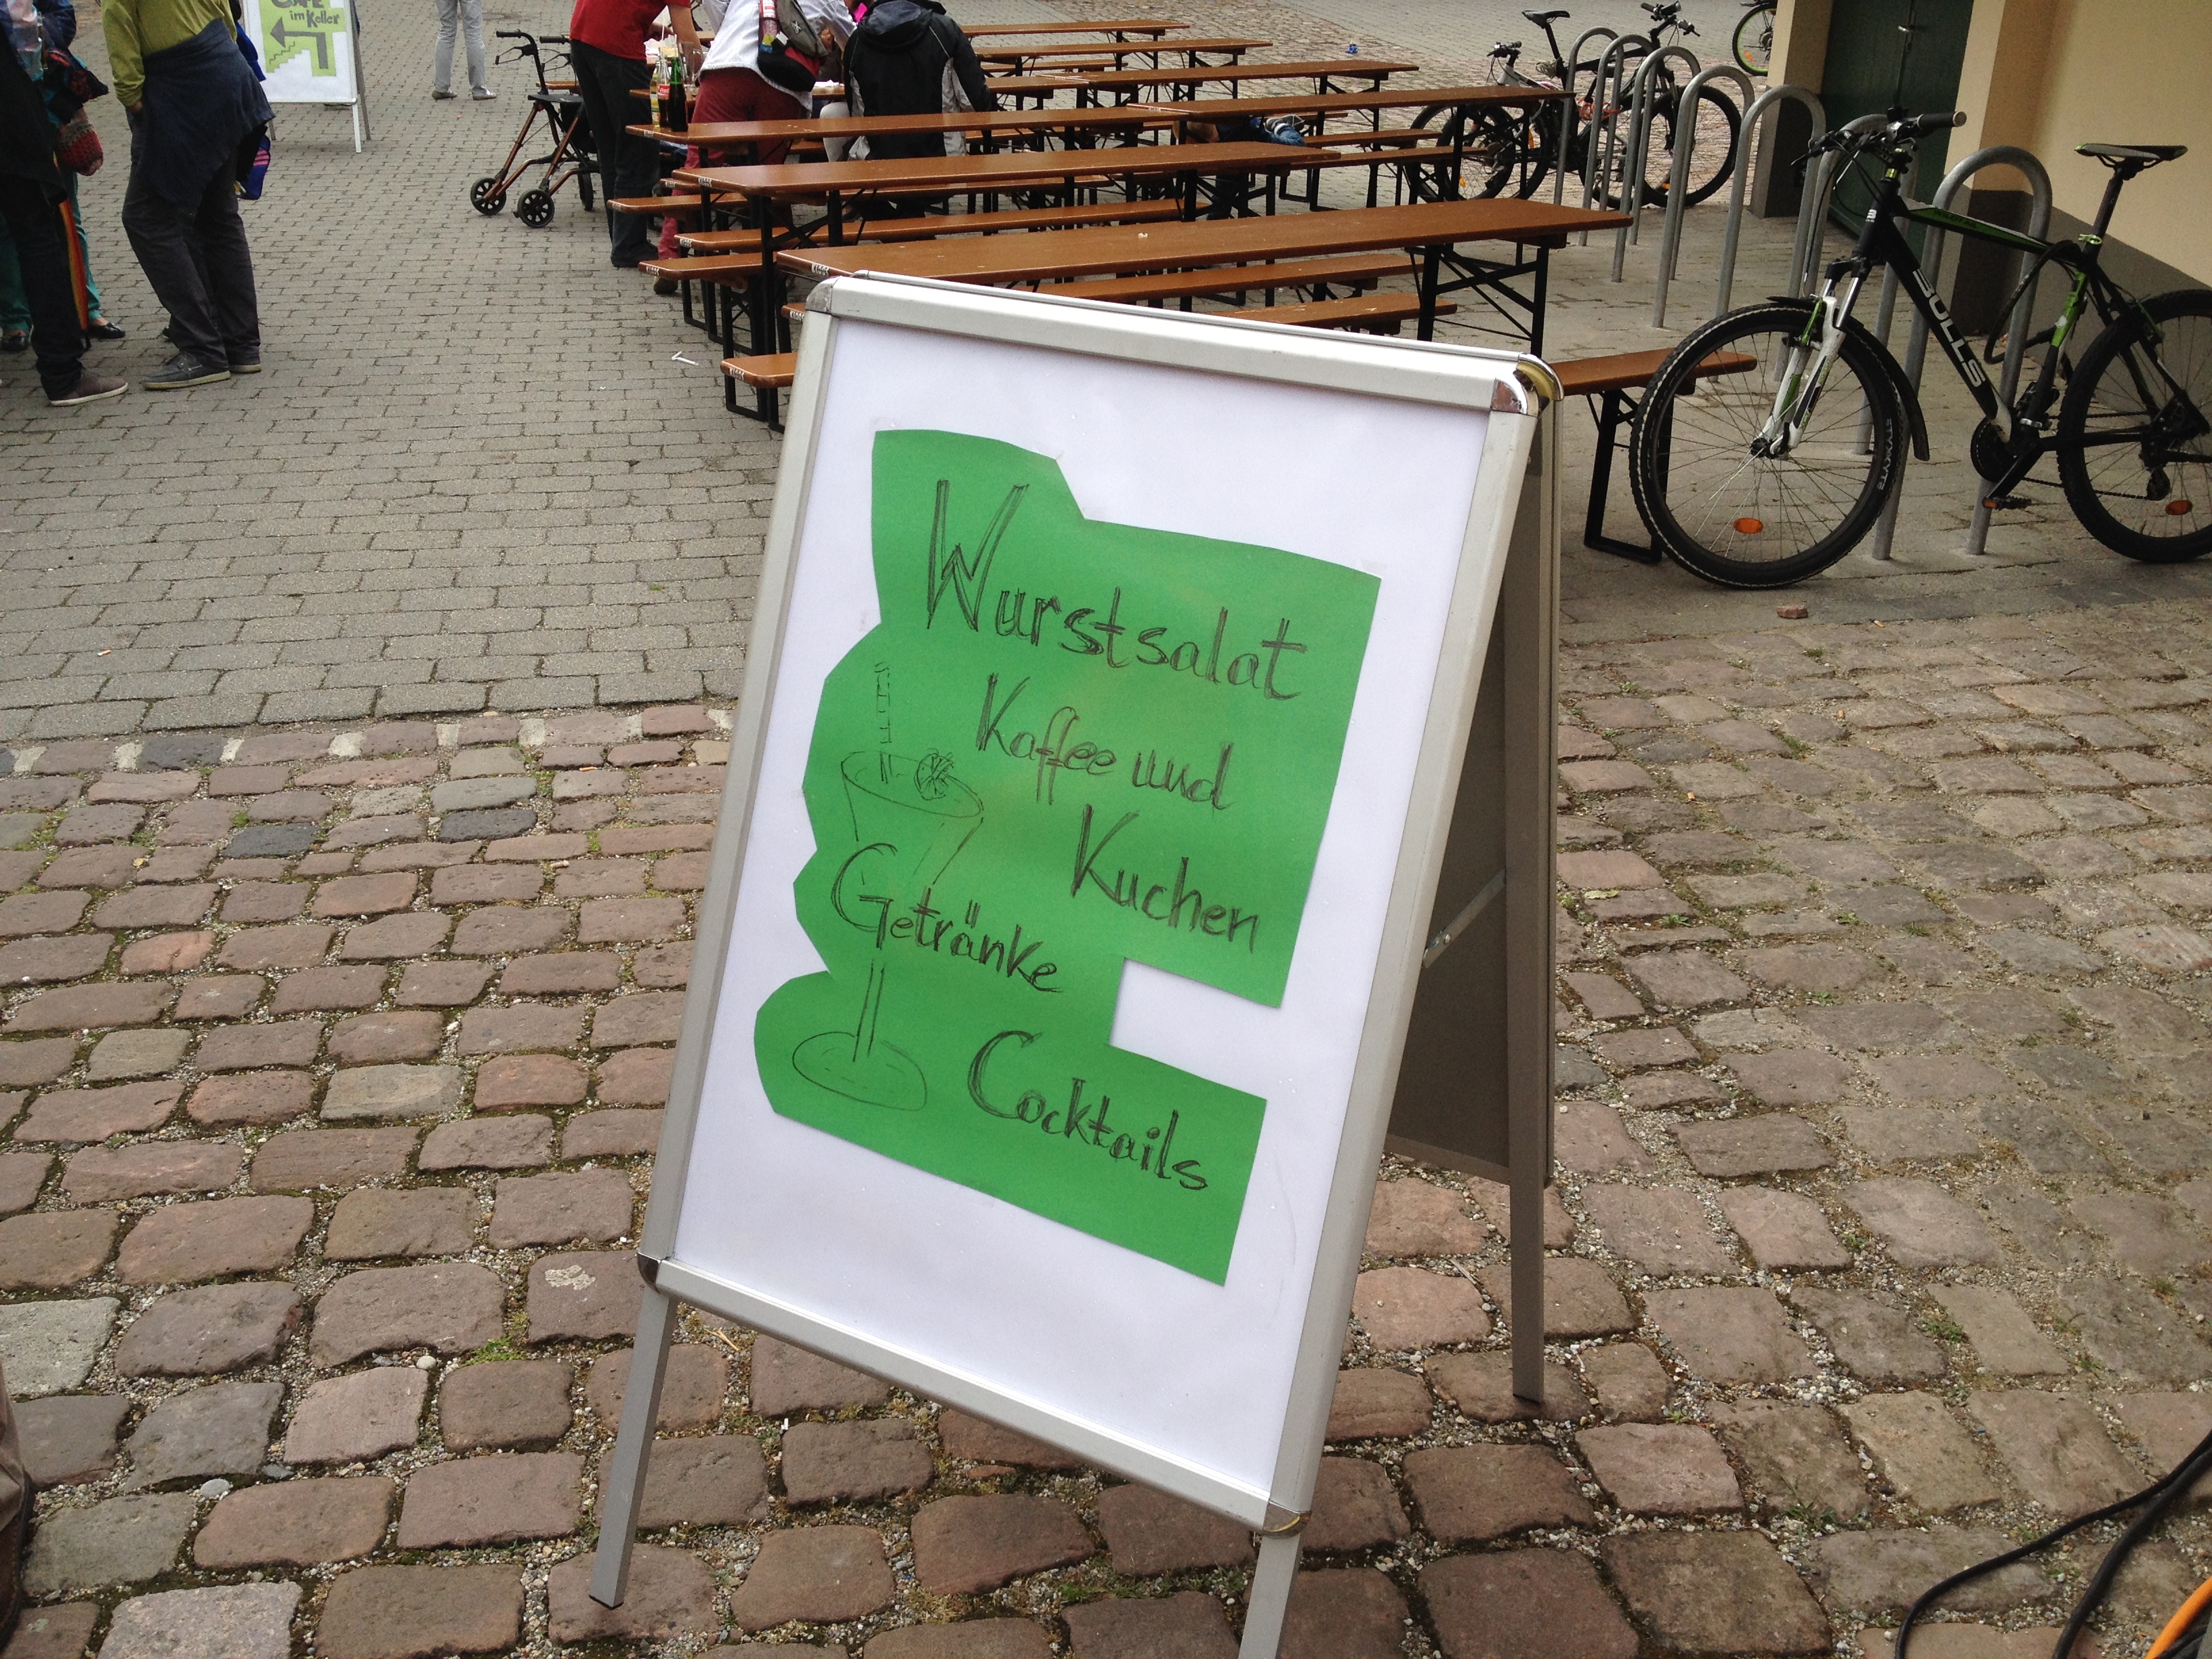 CAFE
im Keller
Wurstsalat
Kaffee und
Kuchen
Getränke
Cocktails
BULLS